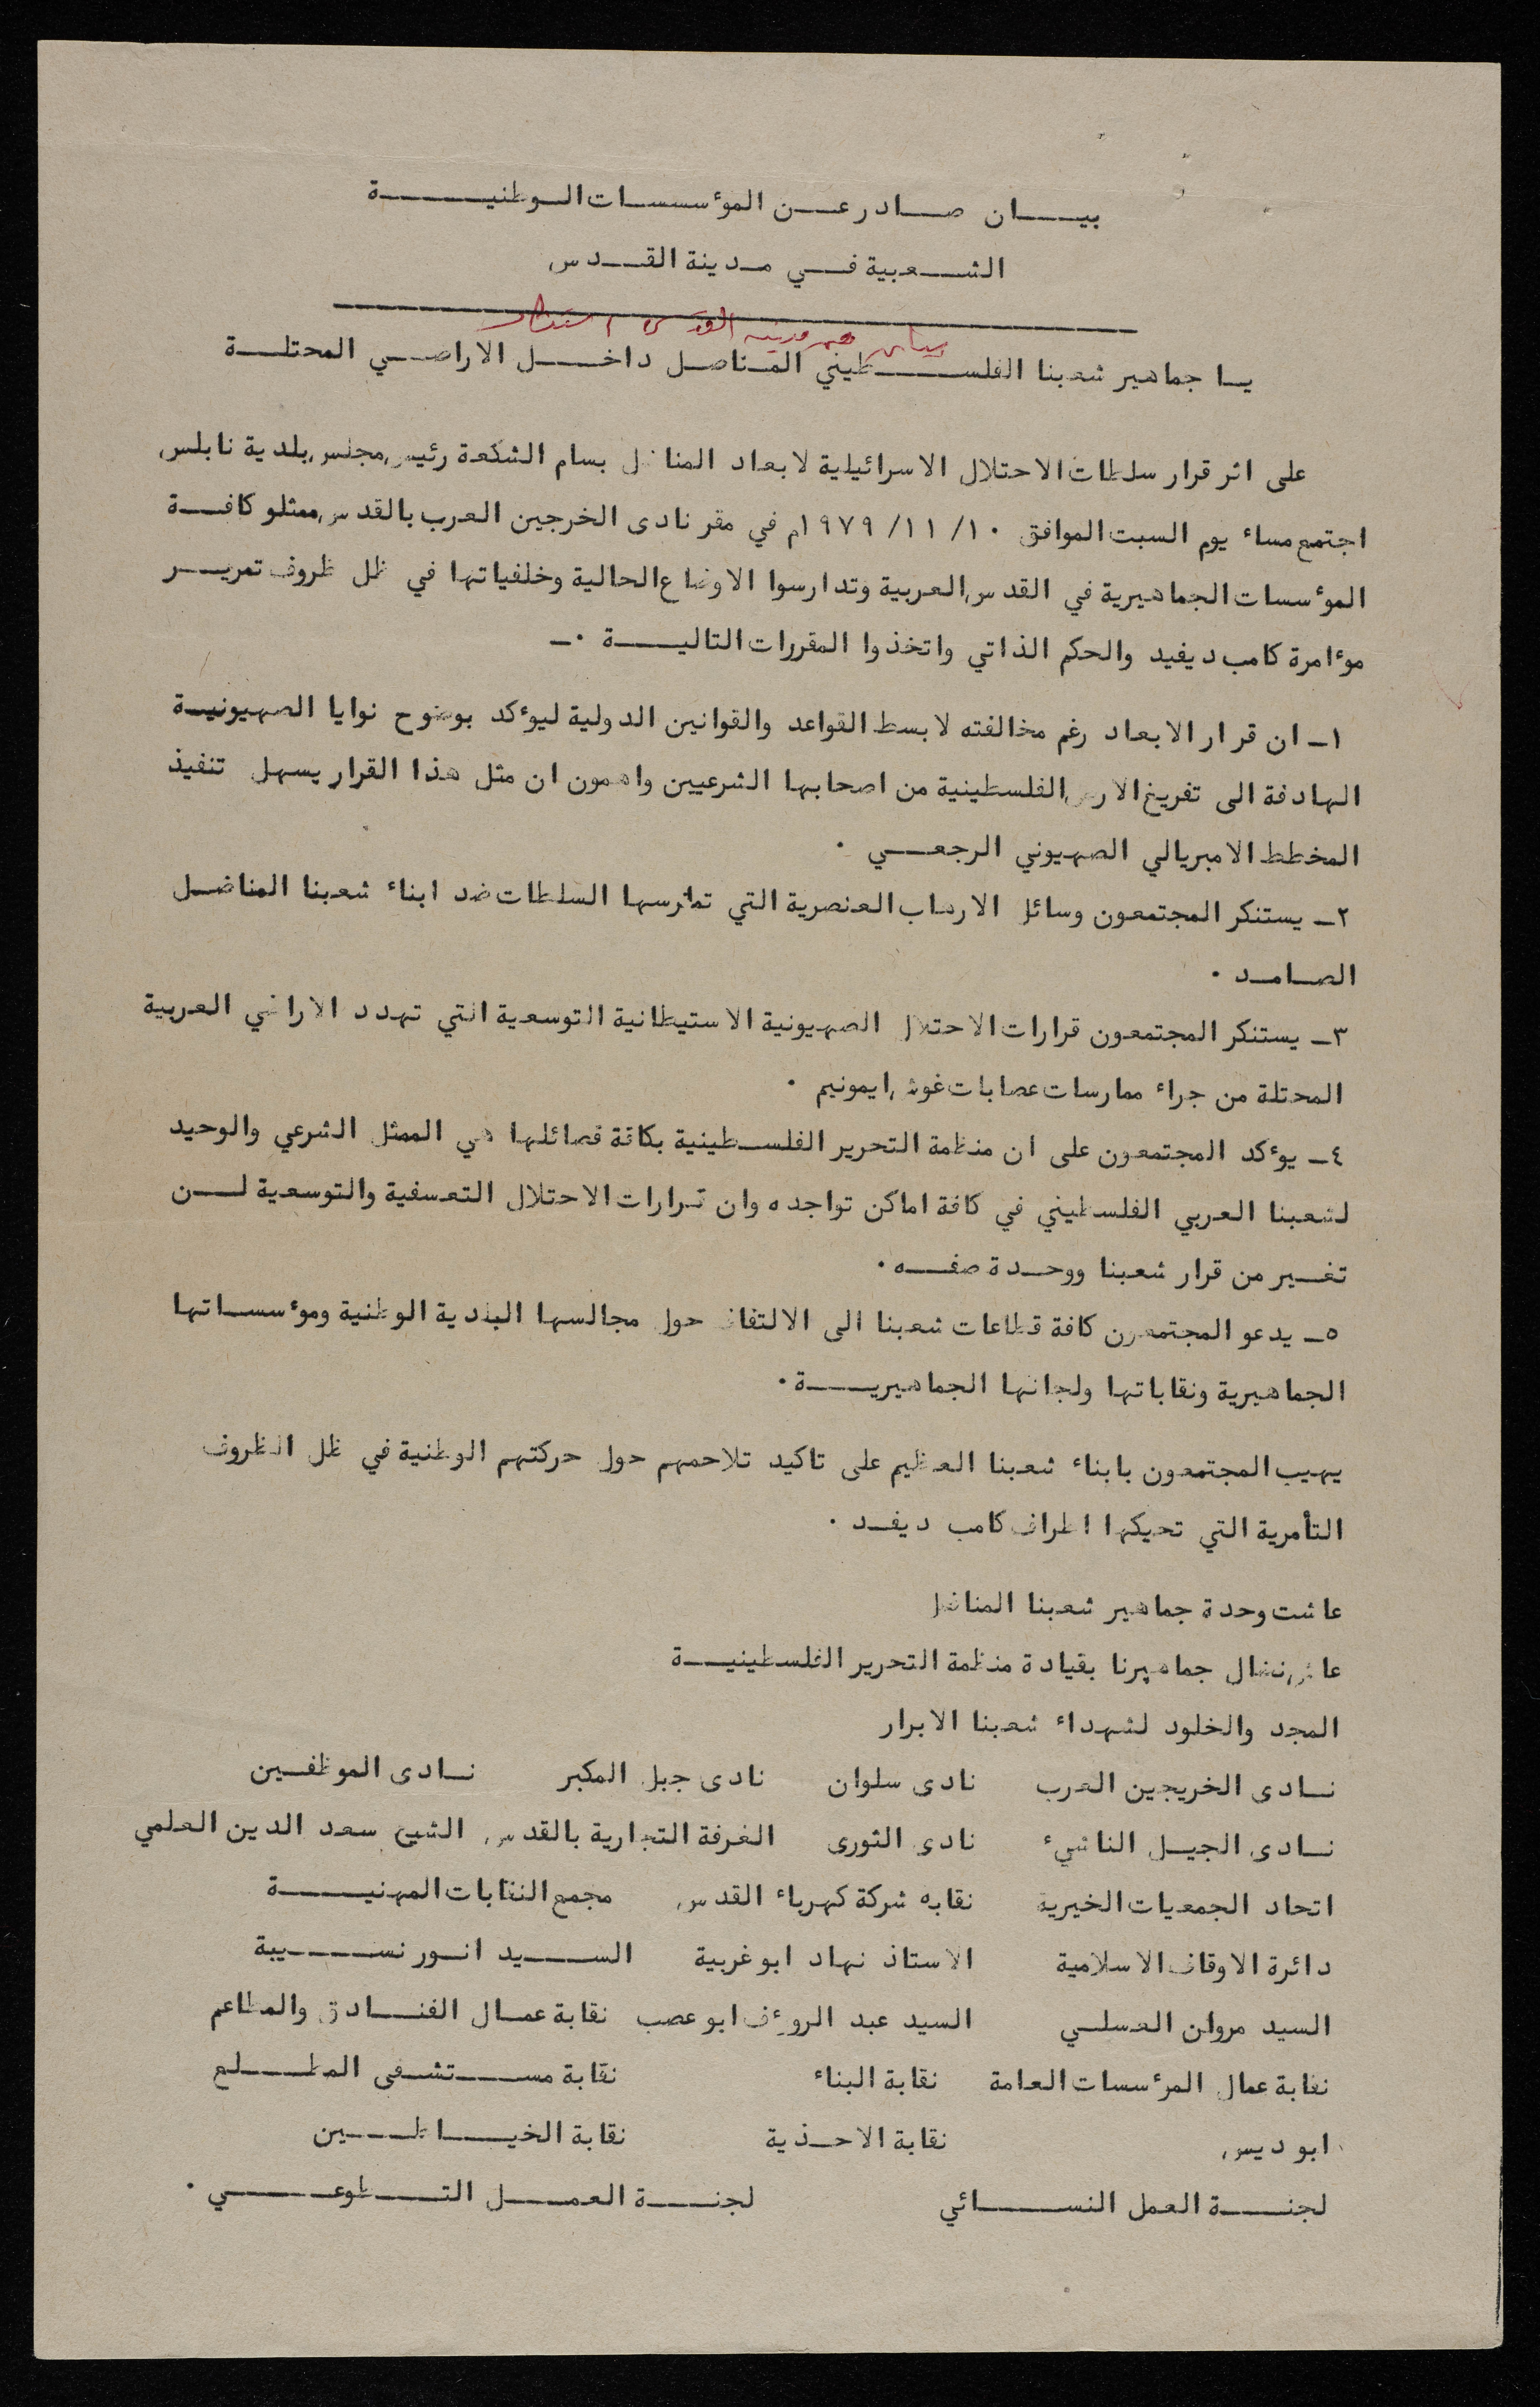 بيان صادر عن المؤسسات الوطنية
الشعبية في مدينة القدس
بيان من مدينة القدس استنكار
يا جماهير شعبنا الفلسطيني المناضل داخل الاراضي المحتلة
على اثر قرار سلطات الاحتلال الاسرائيلية لابعاد المناضل بسام الشكعة رئيس مجلس بلدية نابلس
اجتمع مساء يوم السبت الموافق ١٠/ ١١/ ١٩٧٩م في مقر نادى الخرجين العرب بالقدس ممثلو كافة
المؤسسات الجماهيرية في القدس العربية وتدارسوا الاوضاع الحالية وخلفياتها في ظل ظروف تمرير
مؤامرة كامب ديفيد والحكم الذاتي واتخذوا المقررات التالية .-
١- ان قرار الابعاد رغم مخالفته لابسط القواعد والقوانين الدولية ليؤكد بوضوح نوايا الصهيونية
الهادفة الى تفريغ الارض الفلسطينية من اصحابها الشرعيين واهمون ان مثل هذا القرار يسهل تنفيذ
المخطط الامبريالي الصهيوني الرجعي .
٢- يستنكر المجتمعون وسائل الارهاب العنصرية التي تمارسها السلطات ضد ابناء شعبنا المناضل
الصامد .
٣- يستنكر المجتمعون قرارات الاحتلال الصهيونية الاستيطانية التوسعية التي تهدد الاراضي العربية
المحتلة من جراء ممارسات عصابات غوش ايمونيم .
٤- يؤكد المجتمعون على ان منظمة التحرير الفلسطينية بكافة فصائلها هي الممثل الشرعي والوحيد
لشعبنا العربي الفلسطيني في كافة اماكن تواجده وان قرارات الاحتلال التعسفية والتوسعية لن
تغير من قرار شعبنا ووحدة صفه .
٥- يدعو المجتمعون كافة قطاعات شعبنا الى الالتفاف حول مجالسها البلدية الوطنية ومؤسساتها
الجماهيرية ونقاباتها ولجانها الجماهيرية .
يهيب المجتمعون بابناء شعبنا العظيم على تاكيد تلاحمهم حول حركتهم الوطنية في ظل الظروف
التأمرية التي تحيكها اطراف كامب ديفد .
عاشت وحدة جماهير شعبنا المناضل
عاش نضال جماهيرنا بقيادة منظمة التحرير الفلسطينية
المجد والخلود لشهداء شعبنا الابرار
نادى الخريجين العرب نادى سلوان نادى جبل المكبر نادى الموظفين
نادى الجيل الناشيء نادى الثورى الغرفة التجارية بالقدس الشيخ سعد الدين العلمي
اتحاد الجمعيات الخيرية نقابه شركة كهرباء القدس مجمع النقابات المهنية
دائرة الاوقاف الاسلامية الاستاذ نهاد ابو غربية السيد انور نسيبة
السيد مروان العسلي السيد عبد الروءف ابو عصب نقابة عمال الفنادق والمطاعم
نقابة عمال المؤسسات العامة نقابة البناء نقابة مستشفى المطلع
ابو ديس نقابة الاحذية نقابة الخياطين
لجنة العمل النسائي لجنة العمل التطوعي .